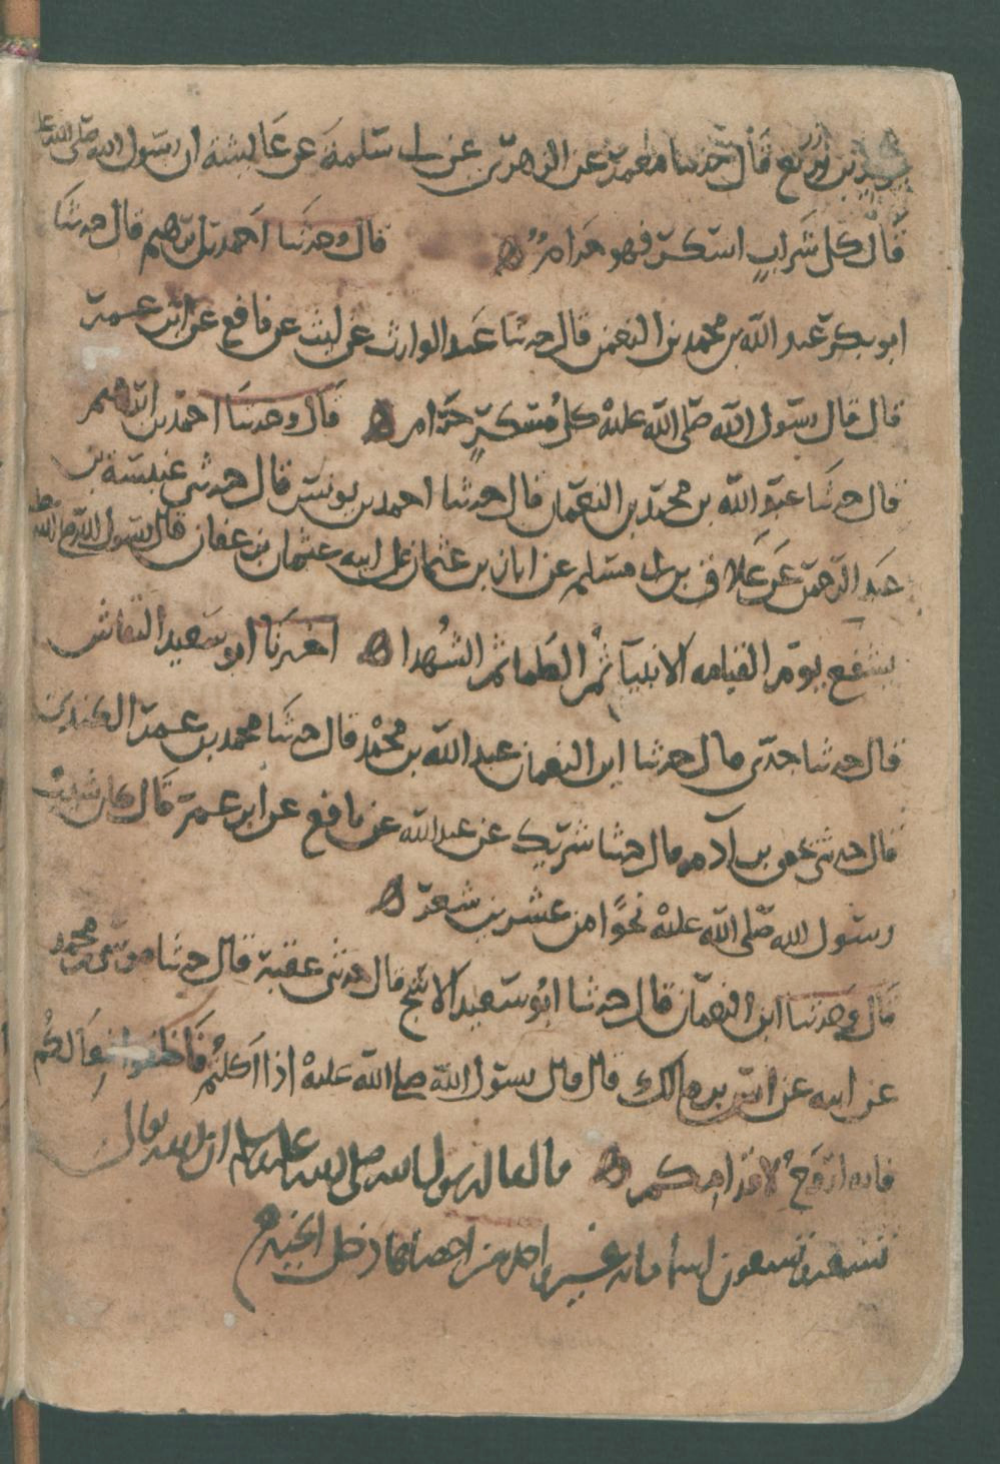 يزيد بن زريع قال حدثنا معمر عن الزهري عن ابي سلمة عن عايشة ان رسول الله صلى الله عليه
قال كل شراب اسكر فهو حرام ه قال وحدثنا احمد بن ابرهيم قال حدثنا
ابو بكر عبد الله بن محمد بن النعمن قال حدثنا عبد الوارث عن ليث عن نافع عن ابن عمر
قال قال رسول الله صلى الله عليه كل مسكر حرام ه قال وحدثنا احمد بن ابرهيم
قال حدثنا عبد الله بن محمد بن النعمان قال حدثنا احمد بن يونس قال حدثني عنبسة بن
عبد الرحمن عن علاق بن ابي مسلم عن ابان بن عثمان عن ابيه عثمان بن عفان قال رسول الله صلى الله عليه
يشفع يوم القيامه الانبيآ ثم العلما ثم الشهدا ه اخبرنا ابو سعيد النقاش
قال حدثنا جدي قال حدثنا ابن النعمان عبد الله بن محمد قال حدثنا محمد بن عمر الكندي
قال حدثني يحيى بن آدم قال حدثنا شريك عن عبد الله عن نافع عن ابن عمر قال كان شيب
رسول الله صلى الله عليه نحوا من عشرين شعرة ه
قال وحدثنا ابن النعمان قال حدثنا ابو سعيد الاشج قال حدثني عقبة قال حدثنا موسى بن محمد
عن ابيه عن انس بن مالك قال قال رسول الله صلى الله عليه اذا اكلتم فاخلعوا نعالكم
فانه اروح لاقدامكم ه قال رسول الله صلى الله عليه وسلم ان لله تعالى
تسعة وتسعون اسما مائة غير واحد من احصاها دخل الجنة